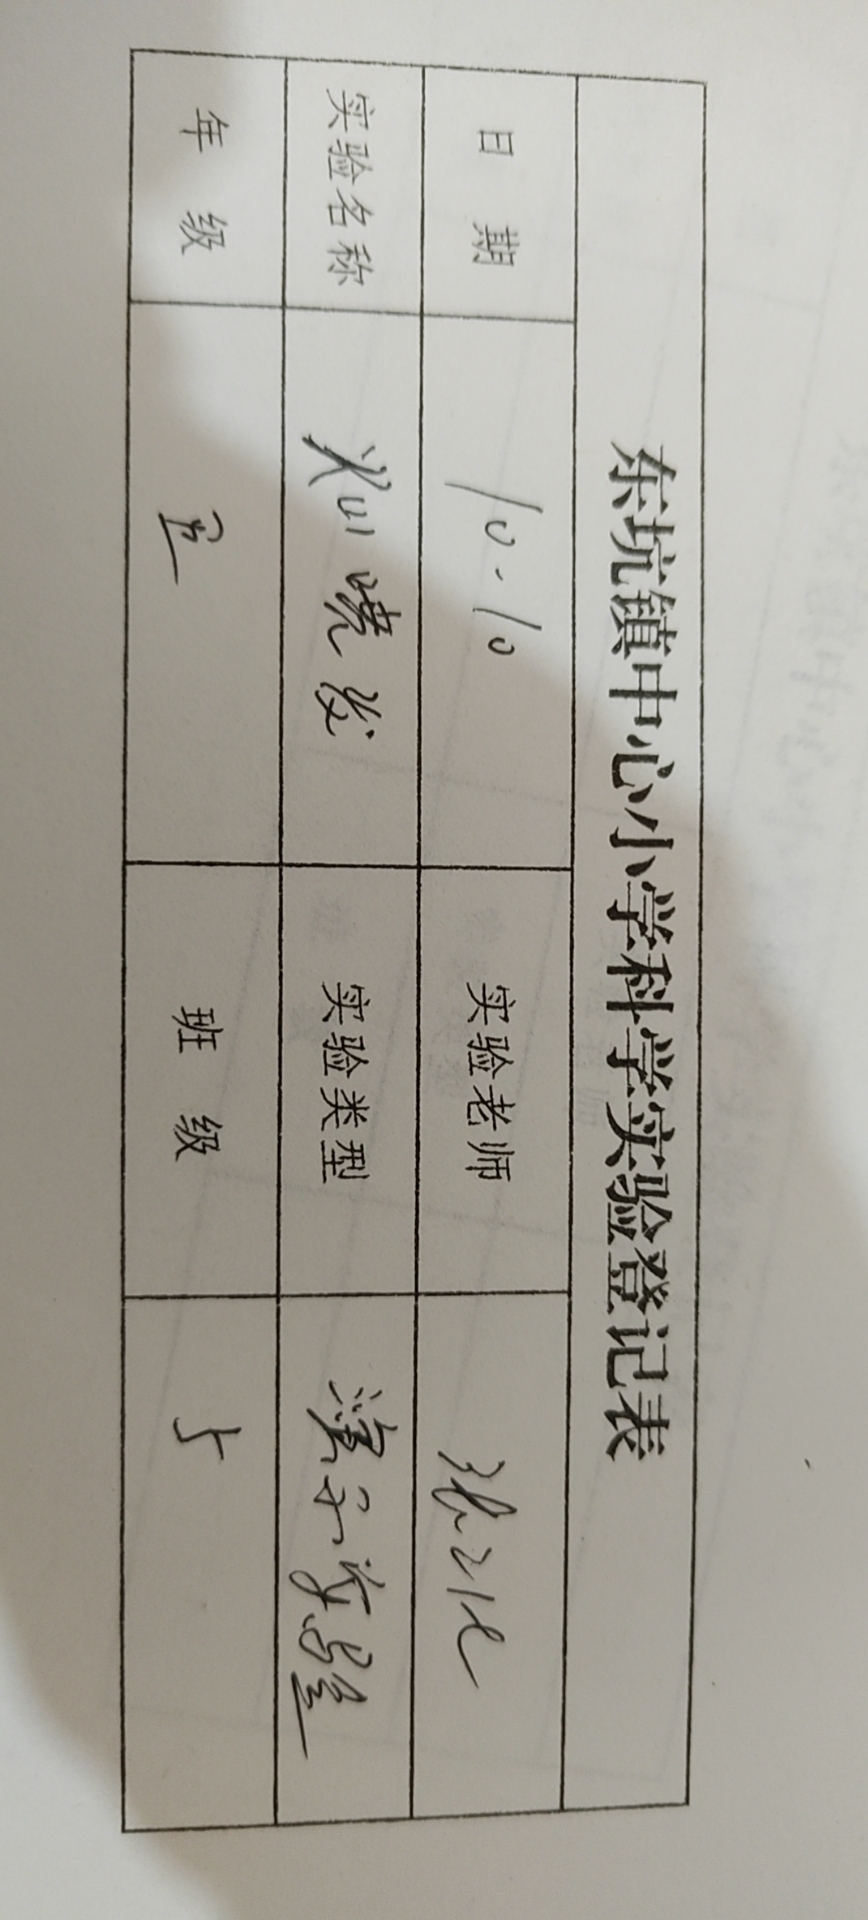 东坑镇中心小学科学实验登记表
日 期 10.10 实验老师 张
实验名称 火山喷发 实验类型 演示实验
年 级 五 班 级 5